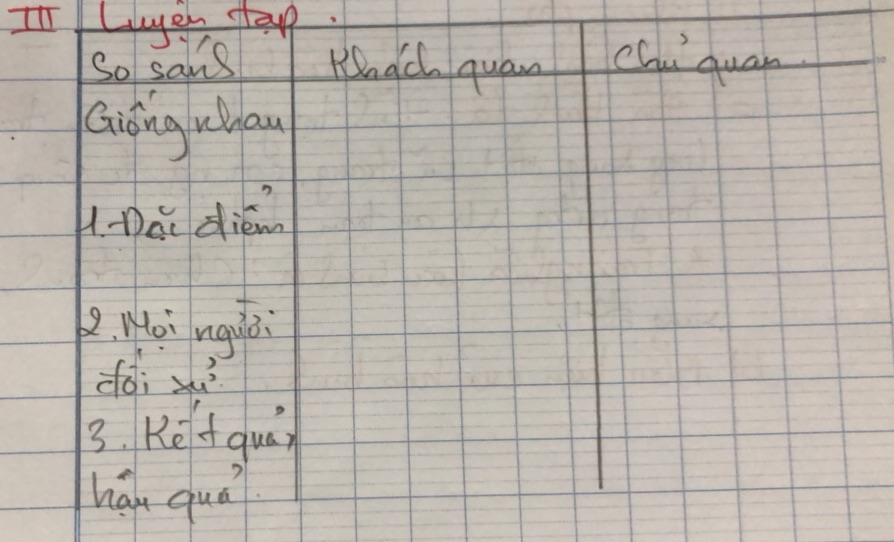 III Luyện tập.
So sánh Khách quan Chủ quan
Giống nhau
1. Đặc điểm
2. Mọi người
đối xử.
3. Kết quả,
hậu quả.